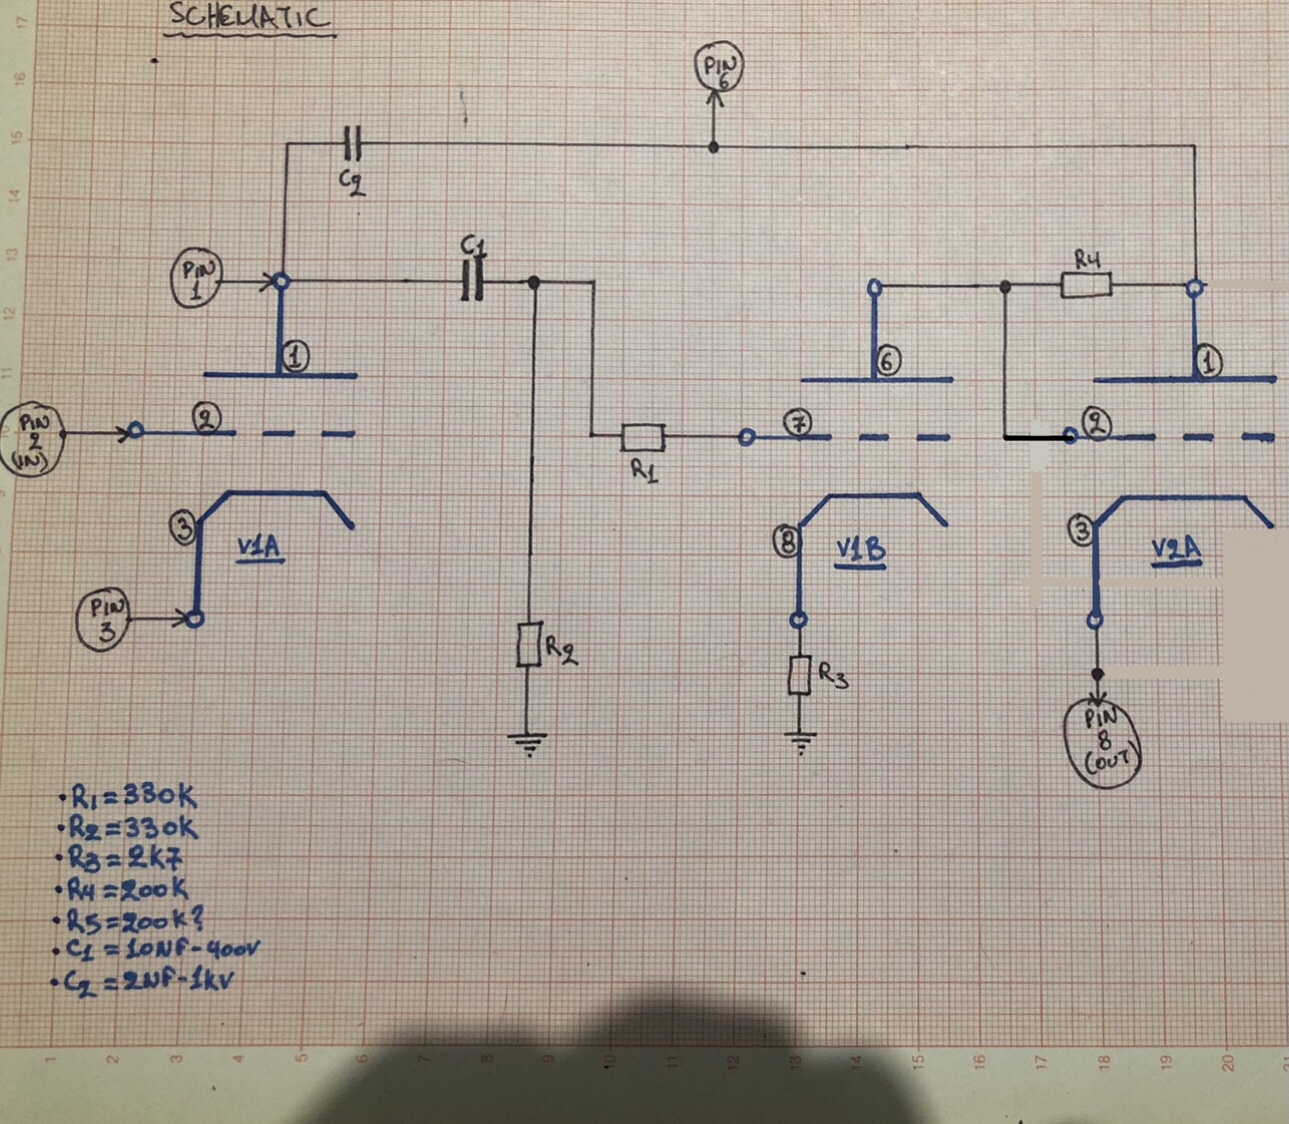 SCHEMATIC
PIN 6
C2
C1
PIN 1
R4
1
6
1
PIN 2 (IN)
2
7
2
R1
3
V1A
8
V1B
3
V2A
PIN 3
R2
R3
PIN 8 (OUT)
•R1=330K
•R2=330K
•R3=2K7
•R4=200K
•R5=200K?
•C1=10NF-400V
•C2=2NF-1KV
17
16
15
14
13
12
11
1 2 3 4 5 6 7 8 9 10 11 12 13 14 15 16 17 18 19 20